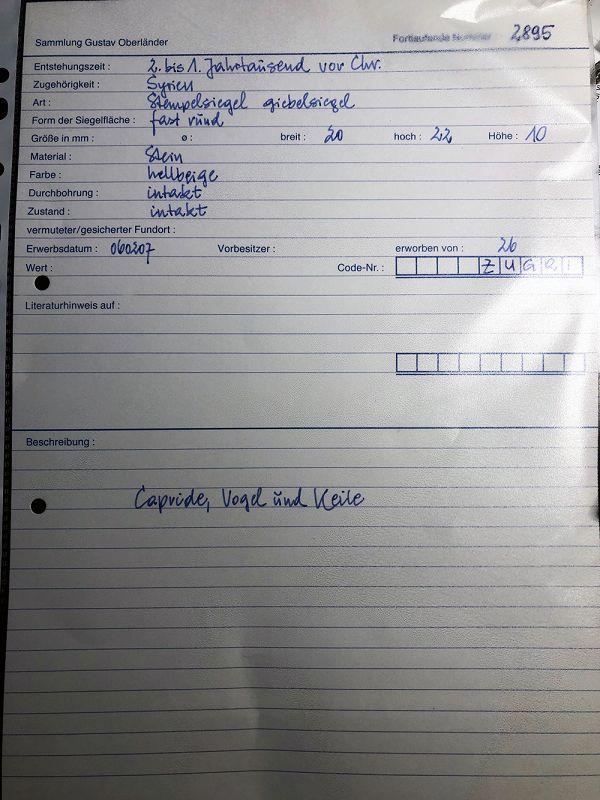 Sammlung Gustav Oberländer Fortlaufende Nummer 2895
Entstehungszeit : 2. bis 1. Jahrtausend vor Chr.
Zugehörigkeit : Syrien
Art : Stempelsiegel giebelsiegel
Form der Siegelfläche : fast rund
Größe in mm : ø : breit : 20 hoch : 22 Höhe : 10
Material : Stein
Farbe : hellbeige
Durchbohrung : intakt
Zustand : intakt
vermuteter/gesicherter Fundort :
Erwerbsdatum : 060207 Vorbesitzer : erworben von : 26
Wert : Code-Nr. : ZUGRI
Literaturhinweis auf :
Beschreibung :
Capride, Vogel und Keile